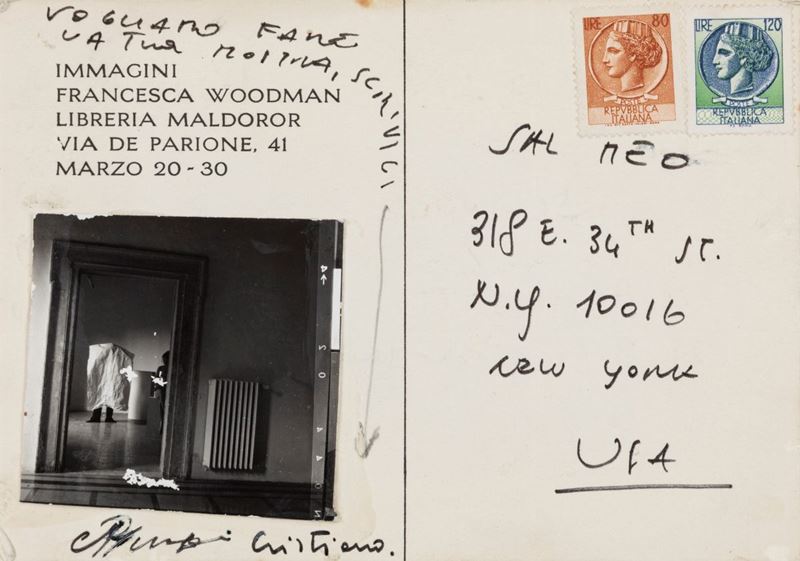 VOGLIAMO FARE
LA TUA MOSTRA, SCRIVICI
IMMAGINI
FRANCESCA WOODMAN
LIBRERIA MALDOROR
VIA DE PARIONE, 41
MARZO 20 - 30
Cristiano.
LIRE 80
POSTE
REPVBBLICA
ITALIANA
LIRE 120
POSTE
REPVBBLICA
ITALIANA
SAL MEO
318 E. 34TH ST.
N.Y. 10016
NEW YORK
USA